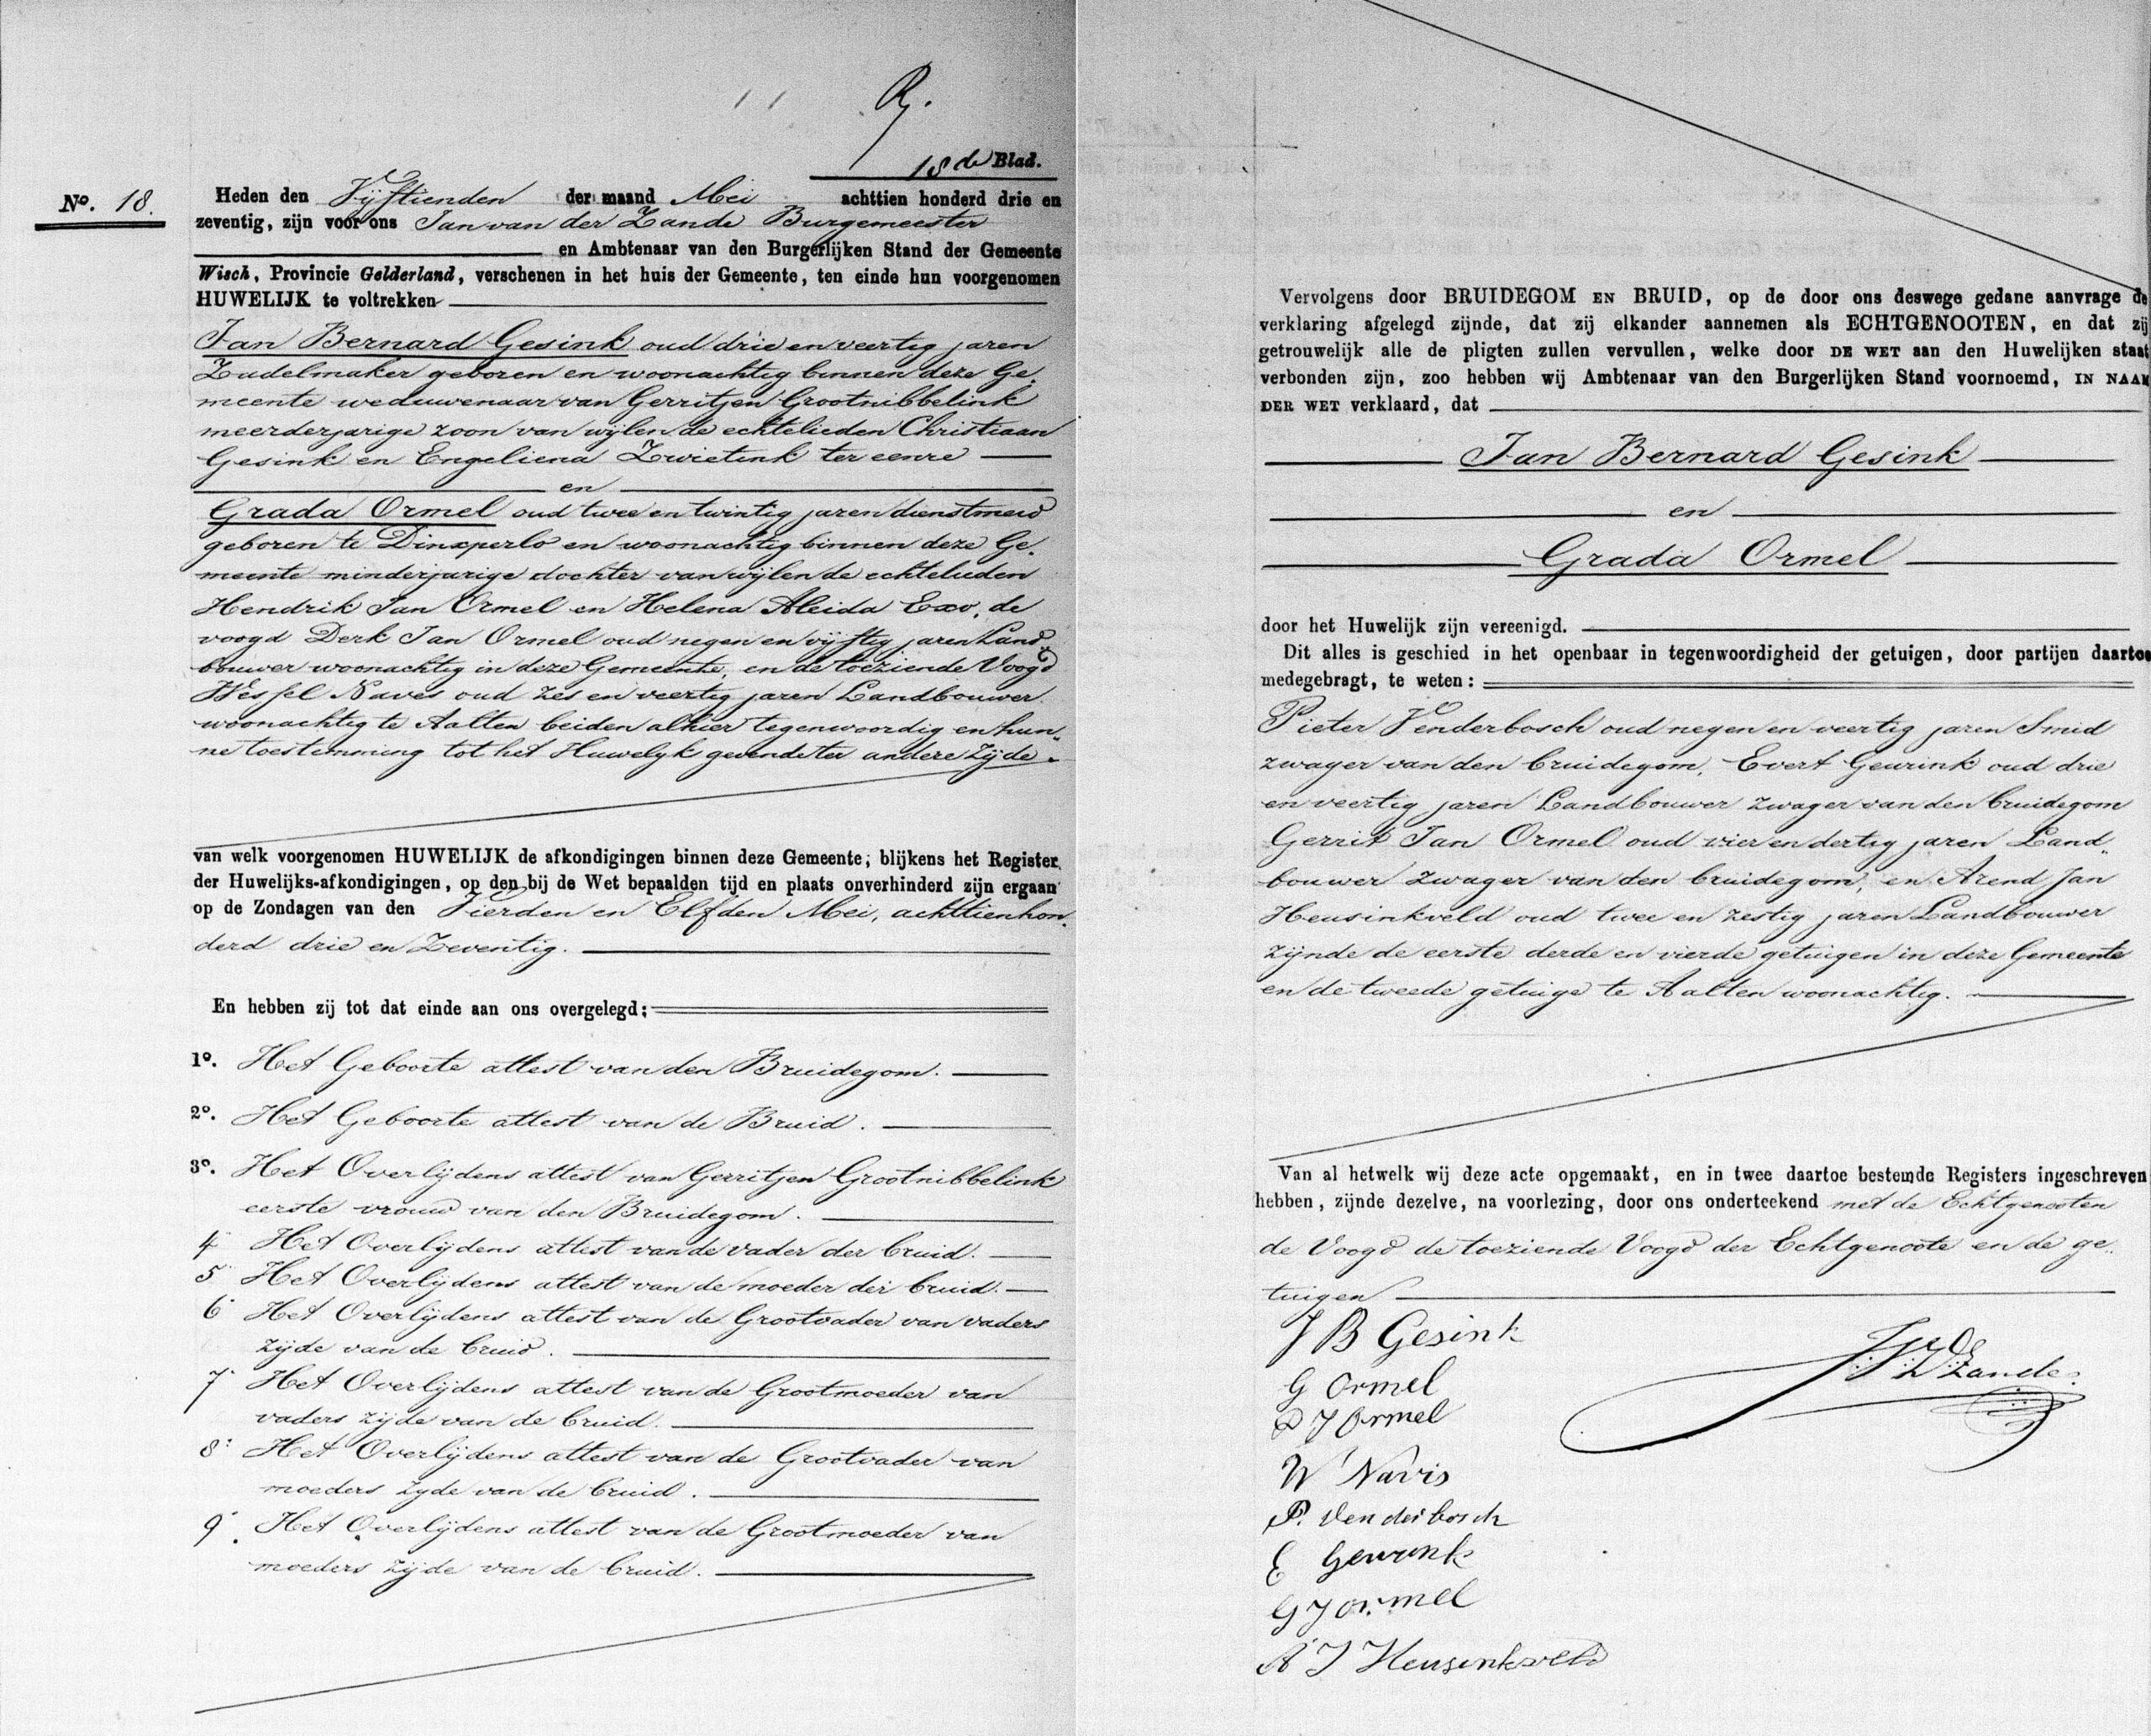 18de Blad.
No. 18.
Heden den Vijftienden der maand Mei achttien honderd drie en
zeventig, zijn voor ons Jan van der Zande Burgemeester
en Ambtenaar van den Burgerlijken Stand der Gemeente
Wisch, Provincie Gelderland, verschenen in het huis der Gemeente, ten einde hun voorgenomen
HUWELIJK te voltrekken
Jan Bernard Gesink oud drie en veertig jaren
Zadelmaker geboren en woonachtig binnen deze Ge-
meente weduwenaar van Gerritjen Grootnibbelink
meerderjarige zoon van wijlen de echtelieden Christiaan
Gesink en Engeliena Zwietink ter eenre
en
Grada Ormel oud twee en twintig jaren dienstmeid
geboren te Dinxperlo en woonachtig binnen deze Ge-
meente minderjarige dochter van wijlen de echtelieden
Hendrik Jan Ormel en Helena Aleida Exo, de
voogd Derk Jan Ormel oud negen en vijftig jaren Land-
bouwer woonachtig in deze Gemeente, en de toeziende Voogd
Wessel Naves oud zes en veertig jaren Landbouwer
woonachtig te Aalten beiden alhier tegenwoordig en hun-
ne toestemming tot het Huwelyk gevende ter andere Zijde.
van welk voorgenomen HUWELIJK de afkondigingen binnen deze Gemeente, blijkens het Register
der Huwelijks-afkondigingen, op den bij de Wet bepaalden tijd en plaats onverhinderd zijn ergaan
op de Zondagen van den Vierden en Elfden Mei, achttienhon-
derd drie en Zeventig.
En hebben zij tot dat einde aan ons overgelegd:
1o. Het Geboorte attest van den Bruidegom.
2o. Het Geboorte attest van de Bruid.
3o. Het Overlijdens attest van Gerritjen Grootnibbelink
eerste vrouw van den Bruidegom.
4 Het Overlijdens attest van de vader der bruid.
5 Het Overlijdens attest van de moeder der bruid.
6 Het Overlijdens attest van de Grootvader van vaders
zijde van de bruid.
7 Het Overlijdens attest van de Grootmoeder van
vaders zijde van de bruid.
8 Het Overlijdens attest van de Grootvader van
moeders zyde van de bruid.
9. Het Overlijdens attest van de Grootmoeder van
moeders zijde van de bruid.
Vervolgens door BRUIDEGOM EN BRUID, op de door ons deswege gedane aanvrage de
verklaring afgelegd zijnde, dat zij elkander aannemen als ECHTGENOOTEN, en dat zij
getrouwelijk alle de pligten zullen vervullen, welke door DE WET aan den Huwelijken staat
verbonden zijn, zoo hebben wij Ambtenaar van den Burgerlijken Stand voornoemd, IN NAAM
DER WET verklaard, dat
Jan Bernard Gesink
en
Grada Ormel
door het Huwelijk zijn vereenigd.
Dit alles is geschied in het openbaar in tegenwoordigheid der getuigen, door partijen daartoe
medegebragt, te weten:
Pieter Venderbosch oud negen en veertig jaren Smid
zwager van den bruidegom, Evert Geurink oud drie
en veertig jaren Landbouwer zwager van den bruidegom
Gerrit Jan Ormel oud vier en dertig jaren Land-
bouwer zwager van den bruidegom, en Arend Jan
Heusinkveld oud twee en zestig jaren Landbouwer
zijnde de eerste derde en vierde getuigen in deze Gemeente
en de tweede getuige te Aalten woonachtig.
Van al hetwelk wij deze acte opgemaakt, en in twee daartoe bestemde Registers ingeschreven
hebben, zijnde dezelve, na voorlezing, door ons onderteekend met de Echtgenooten
de Voogd de toeziende Voogd der Echtgenoote en de ge-
tuigen
J B Gesink
G Ormel
D J Ormel
W Navis
P. Venderbosch
E Geurink
G J ormel
A J Heusinkveld
JvdZande.